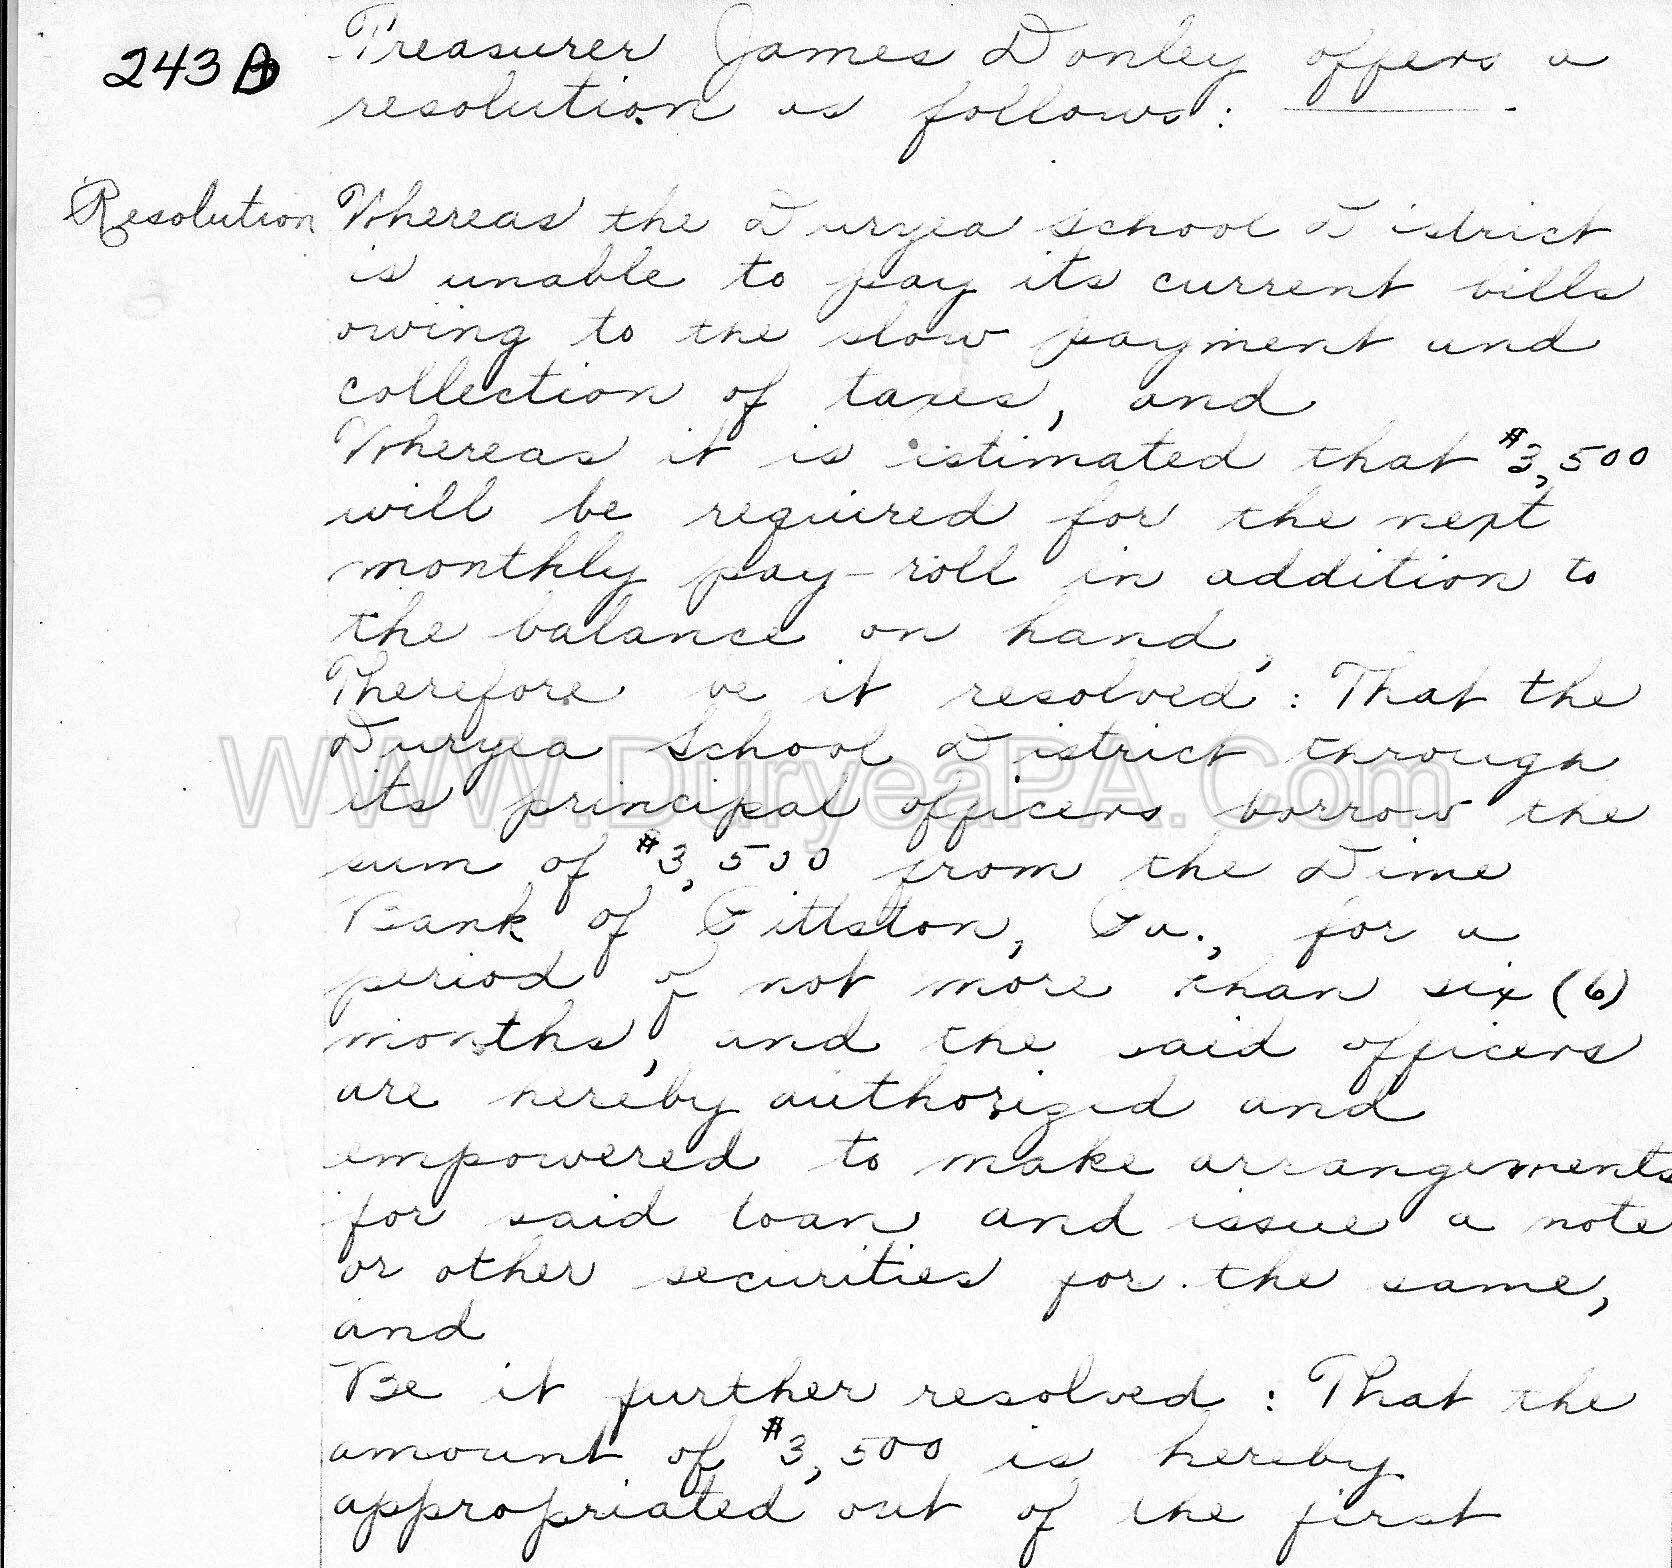 243 A
Treasurer James Donley offers a
resolution as follows:
Resolution
Whereas the Duryea School District
is unable to pay its current bills
owing to the slow payment and
collection of taxes, and
Whereas it is estimated that $3,500
will be required for the next
monthly pay-roll in addition to
the balance on hand,
Therefore be it resolved: That the
Duryea School District through
its principal officers borrow the
sum of $3,500 from the Dime
Bank of Pittston, Pa., for a
period of not more than six (6)
months, and the said officers
are hereby authorized and
empowered to make arrangements
for said loan and issue a note
or other securities for the same,
and
Be it further resolved: That the
amount of $3,500 is hereby
appropriated out of the first
www.DuryeaPA.Com